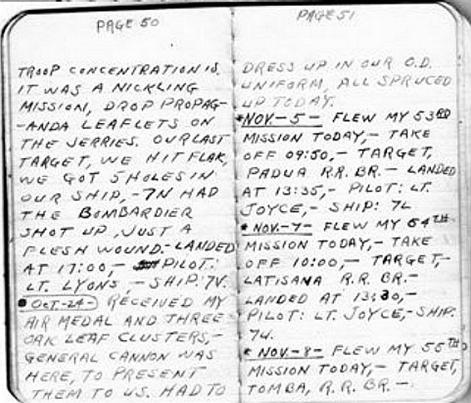 PAGE 50
TROOP CONCENTRATION IS.
IT WAS A NICKLING
MISSION, DROP PROPAG-
-ANDA LEAFLETS ON
THE JERRIES. OUR LAST
TARGET, WE HIT FLAK,
WE GOT 5 HOLES IN
OUR SHIP,-7N HAD
THE BOMBARDIER
SHOT UP, JUST A
FLESH WOUND.-LANDED
AT 17:00,- PILOT:
LT. LYONS,-SHIP: 7V.
OCT-24- RECEIVED MY
AIR MEDAL AND THREE
OAK LEAF CLUSTERS,-
GENERAL CANNON WAS
HERE, TO PRESENT
THEM TO US. HAD TO
PAGE 51
DRESS UP IN OUR O.D.
UNIFORM, ALL SPRUCED
UP TODAY.
*NOV.-5- FLEW MY 53RD
MISSION TODAY,- TAKE
OFF 09:50,- TARGET,
PADUA R.R. BR.- LANDED
AT 13:35,- PILOT: LT.
JOYCE,- SHIP: 7L
*NOV.-7- FLEW MY 54TH
MISSION TODAY,- TAKE
OFF 10:00,- TARGET,-
LATISANA R.R. BR.-
LANDED AT 13:30,-
PILOT: LT. JOYCE,-SHIP:
74.
*NOV.-8- FLEW MY 55TH
MISSION TODAY,- TARGET,
TOMBA, R.R. BR.-